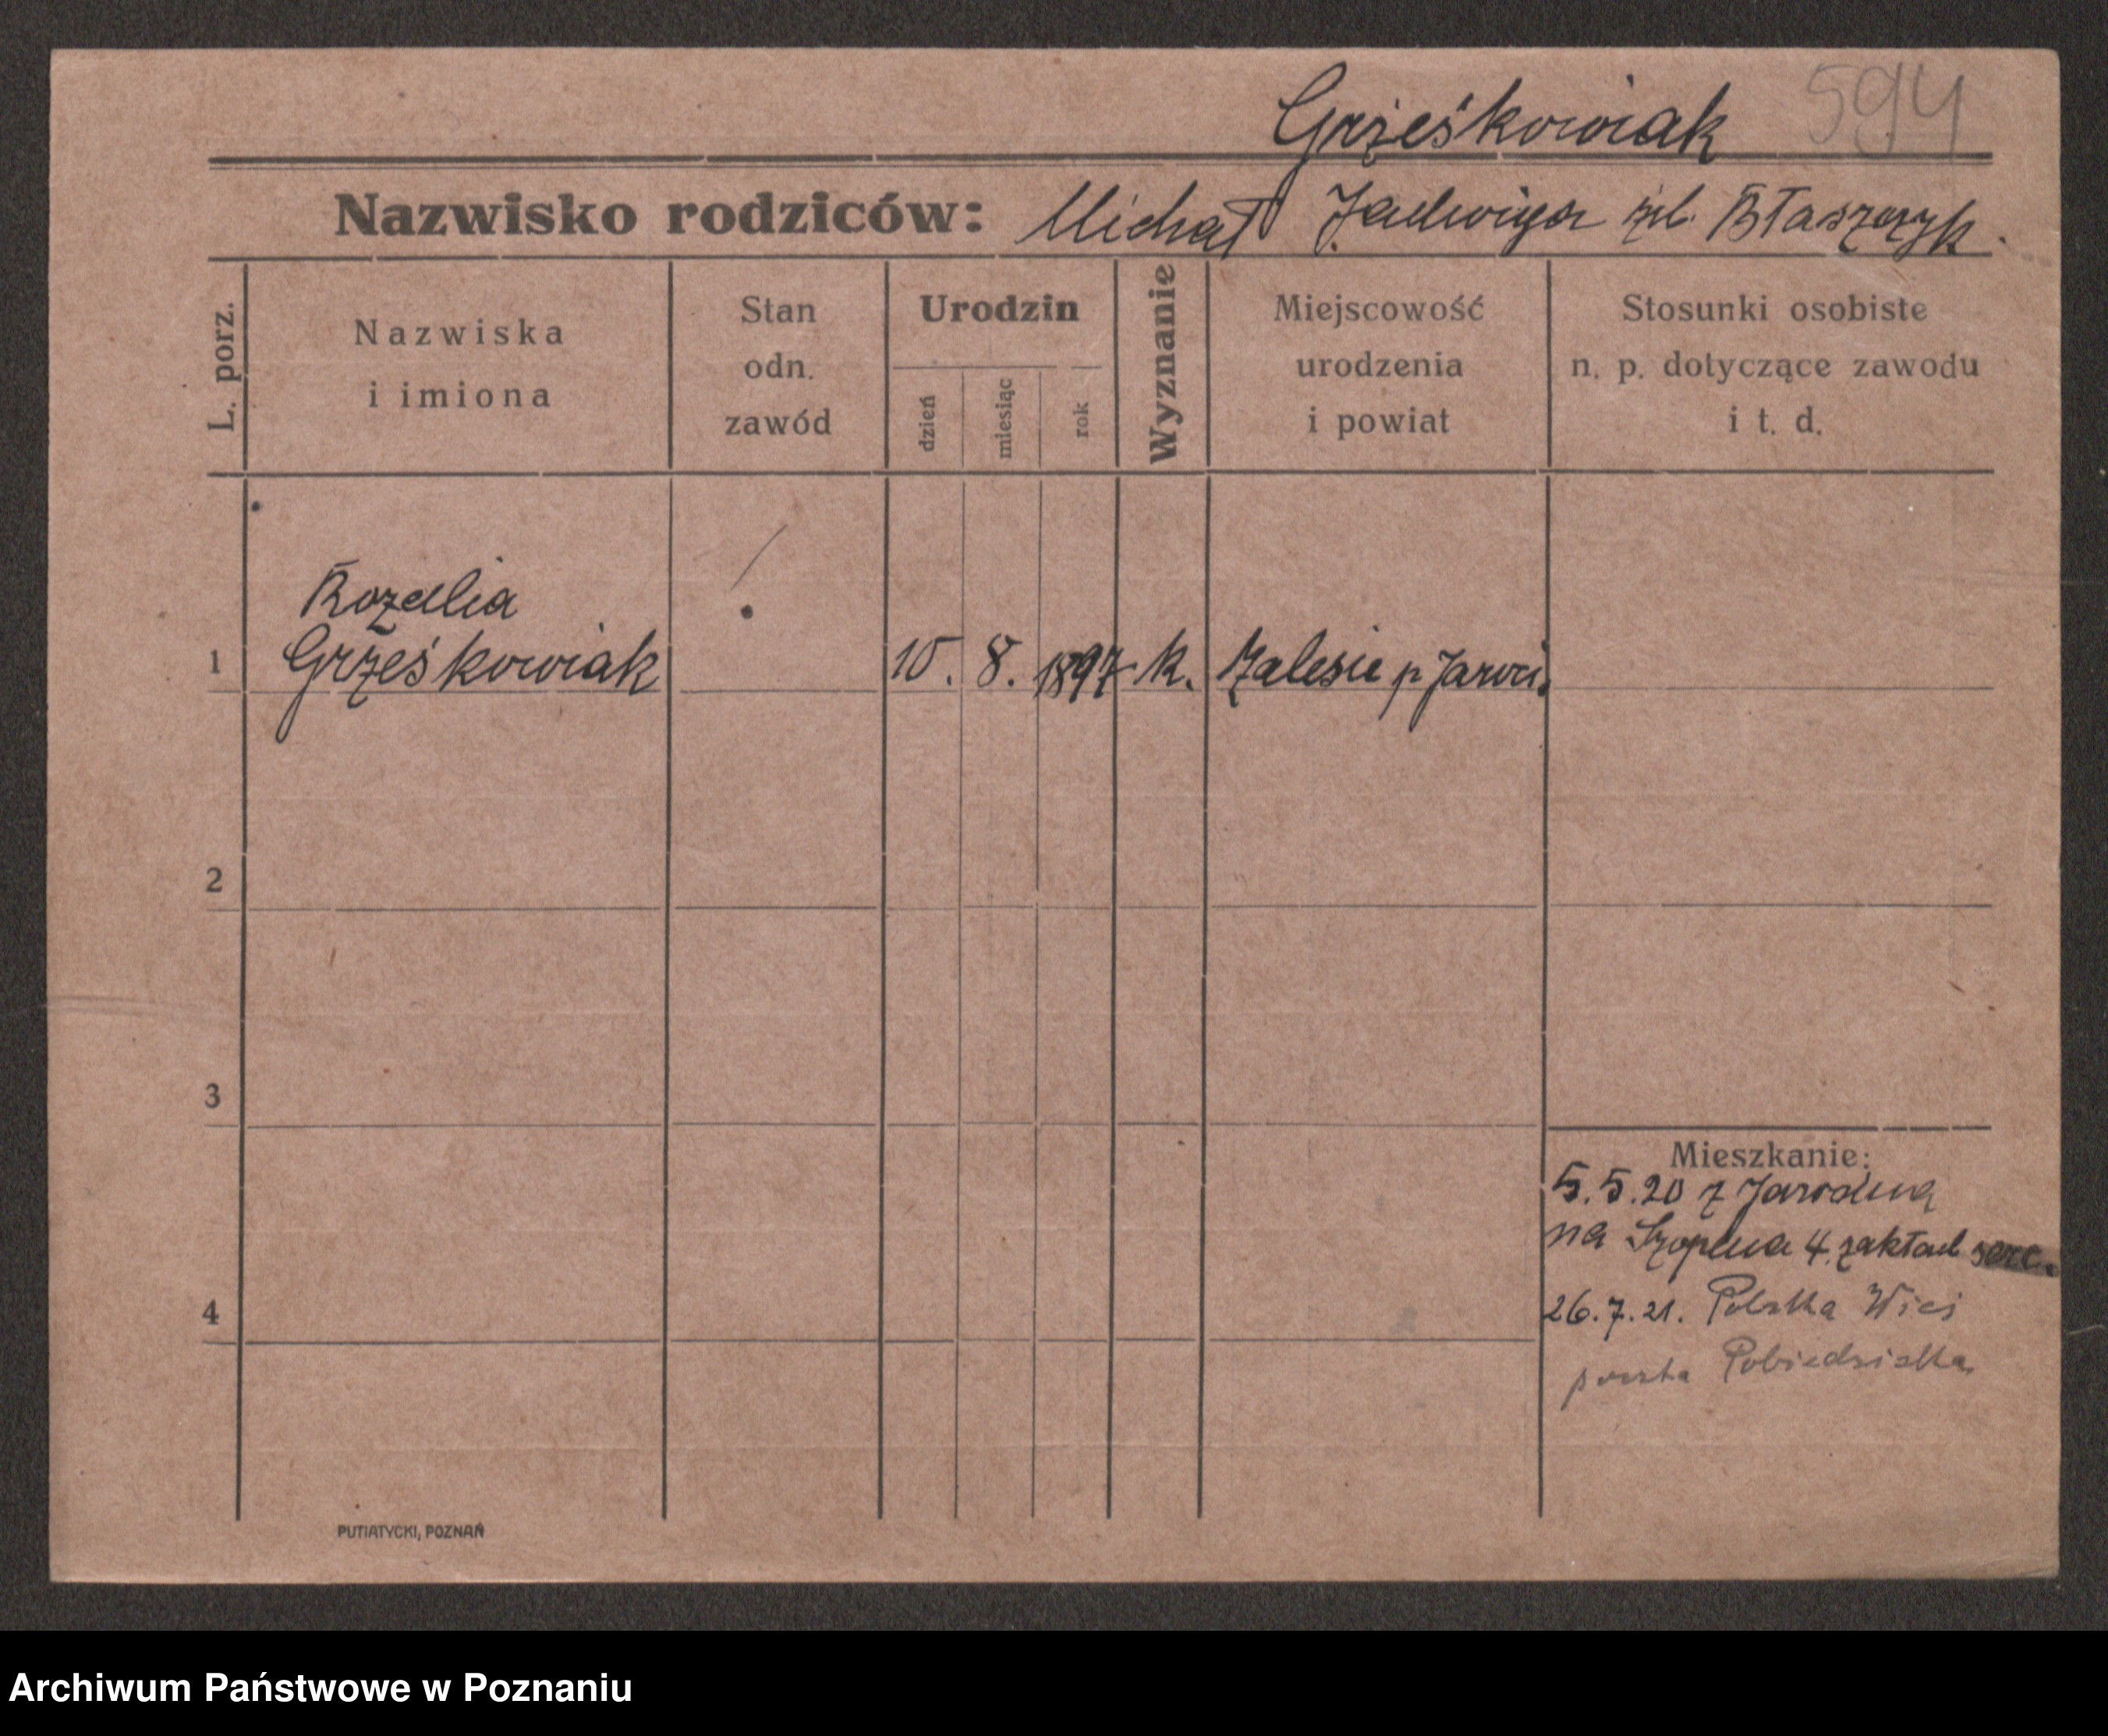 Grześkowiak 594
Nazwisko rodziców: Michał Jadwiga zd. Błaszczyk.
L. porz.
Nazwiska
i imiona
Stan
odn.
zawód
Urodzin
dzień
miesiąc
rok
Wyznanie
Miejscowość
urodzenia
i powiat
Stosunki osobiste
n. p. dotyczące zawodu
i t. d.
Rozalia
1 Grześkowiak 10. 8. 1897 k. Zalesie p Jaroci.
2
3
4
Mieszkanie:
5.5.20 z Jarocina
na Szopena 4. zakład serc.
26.7.21. Polska Wieś
poczta Pobiedziska
PUTIATYCKI, POZNAŃ
Archiwum Państwowe w Poznaniu